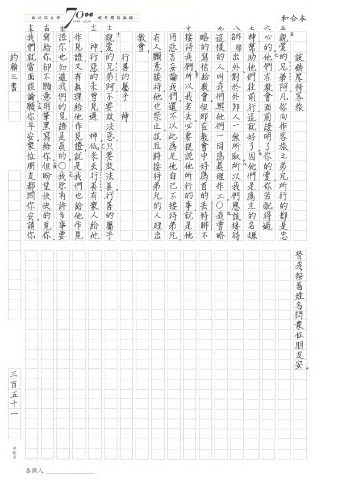 和合本
7000
該猶厚待客旅
五親愛的兄弟阿凡你向作客旅之弟兄所行的都是忠
六心的他們在教會面前證明了你的愛你若配得過
七神幫助他們往前行這就好了因他們是為主的名纔
八出外對於外邦人一無所取所以我們應該接待
九這樣的人叫我們與他們一同為真理作工〇我曾略
略的寫信給教會但那在教會中好為首的丟特腓不
十接待我們所以我若去必要提說他所行的事就是他
用惡言妄論我們還不以此為足他自己不接待弟兄
有人願意接待他也禁止並且將接待弟兄的人趕出
教會
行善的屬乎 神
親愛的兄弟阿不要效法惡只要效法善行善的屬乎
神行惡的未曾見過 神低米丟行善有眾人給他
作見證又有真理給他作見證就是我們也給他作見
證你也知道我們的見證是真的〇我原有許多事要
寫給你卻不願意用筆墨寫給你但盼望快快的見你
我們就當面談論願你平安眾位朋友都問你安請你
替我按著姓名問眾位朋友安
約翰三書
三百五十一